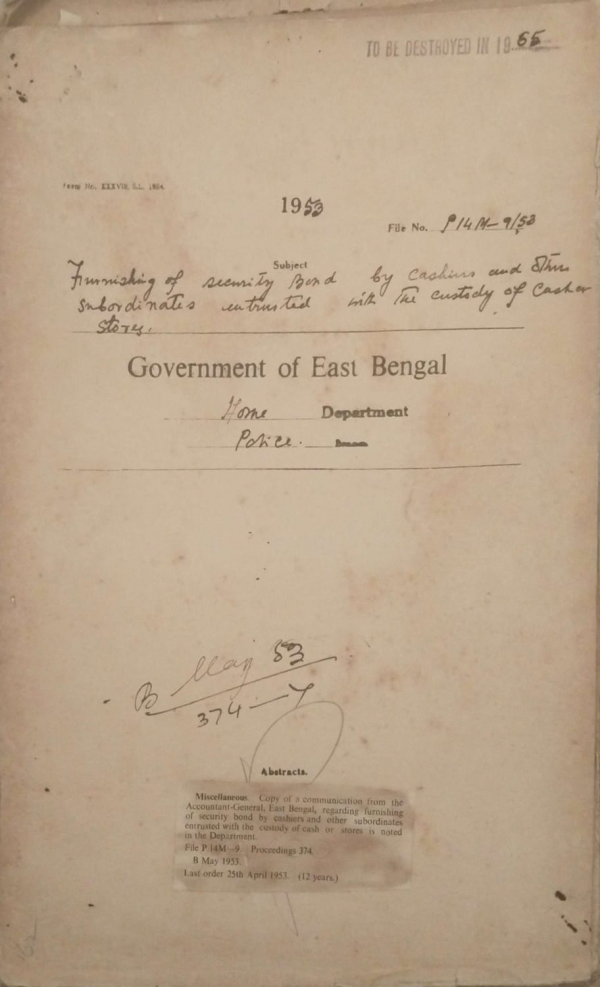 TO BE DESTROYED IN 1965
Form No. XXXVIII,
1953
File No. P 14 M-9/53
Subject
Furnishing of security Bond by cashiers and other
subordinates entrusted with the custody of Cash or
Stores.
Government of East Bengal
Home Department
Police.
B May 53
374
Abstracts.
Miscellaneous. Copy of a communication from the
Accountant-General, East Bengal, regarding furnishing
of security bond by cashiers and other subordinates
entrusted with the custody of cash or stores is noted
in the Department.
File P 14M-9. Proceedings 374.
B May 1953.
Last order 25th April 1953. (12 years.)